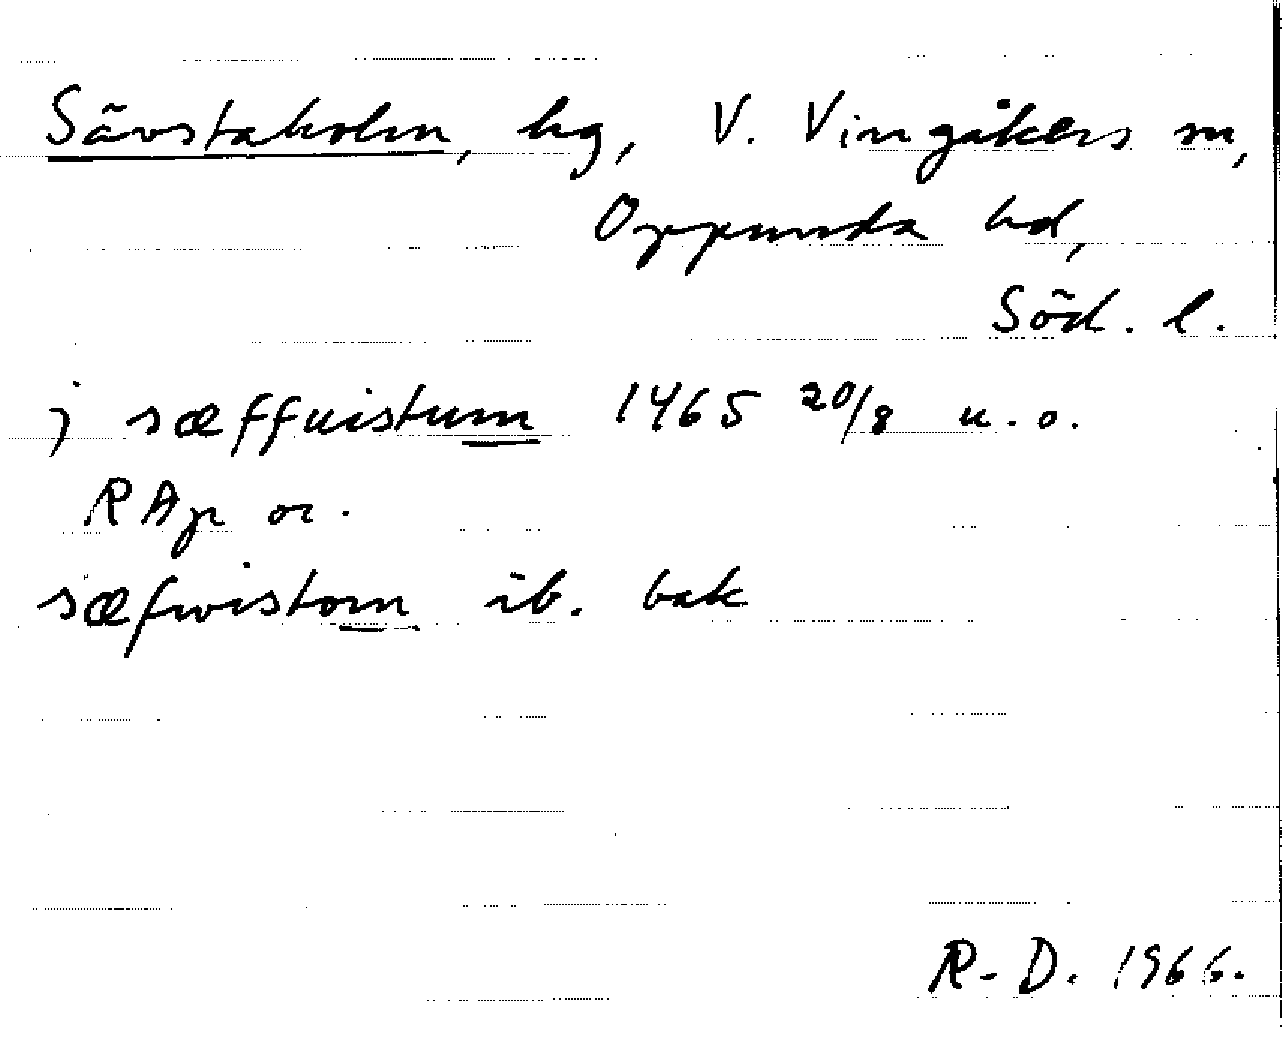 Sävstaholm, hg, V. Vingåkers sn,
Oppunda hd,
Söd. l.
j sæffuistum 1465 20/8 u. o.
RAp or.
sæfwistom ib. bak
R-D. 1966.